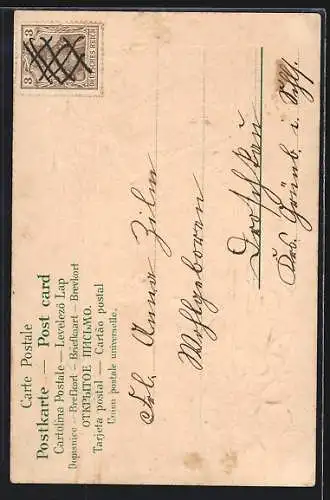 Carte Postale
Postkarte — Post card
Cartolina Postale — Levelező Lap
Dopisnice — Brefkort — Briefkaart — Brevkort
ОТКРЫТОЕ ПИСЬМО.
Tarjeta postal — Cartão postal
Union postale universelle.
3 DEUTSCHES REICH 3
Frl. Anna Zilm
Wohlgeboren
Droschkau
Kr. Grünb. i. Schl.